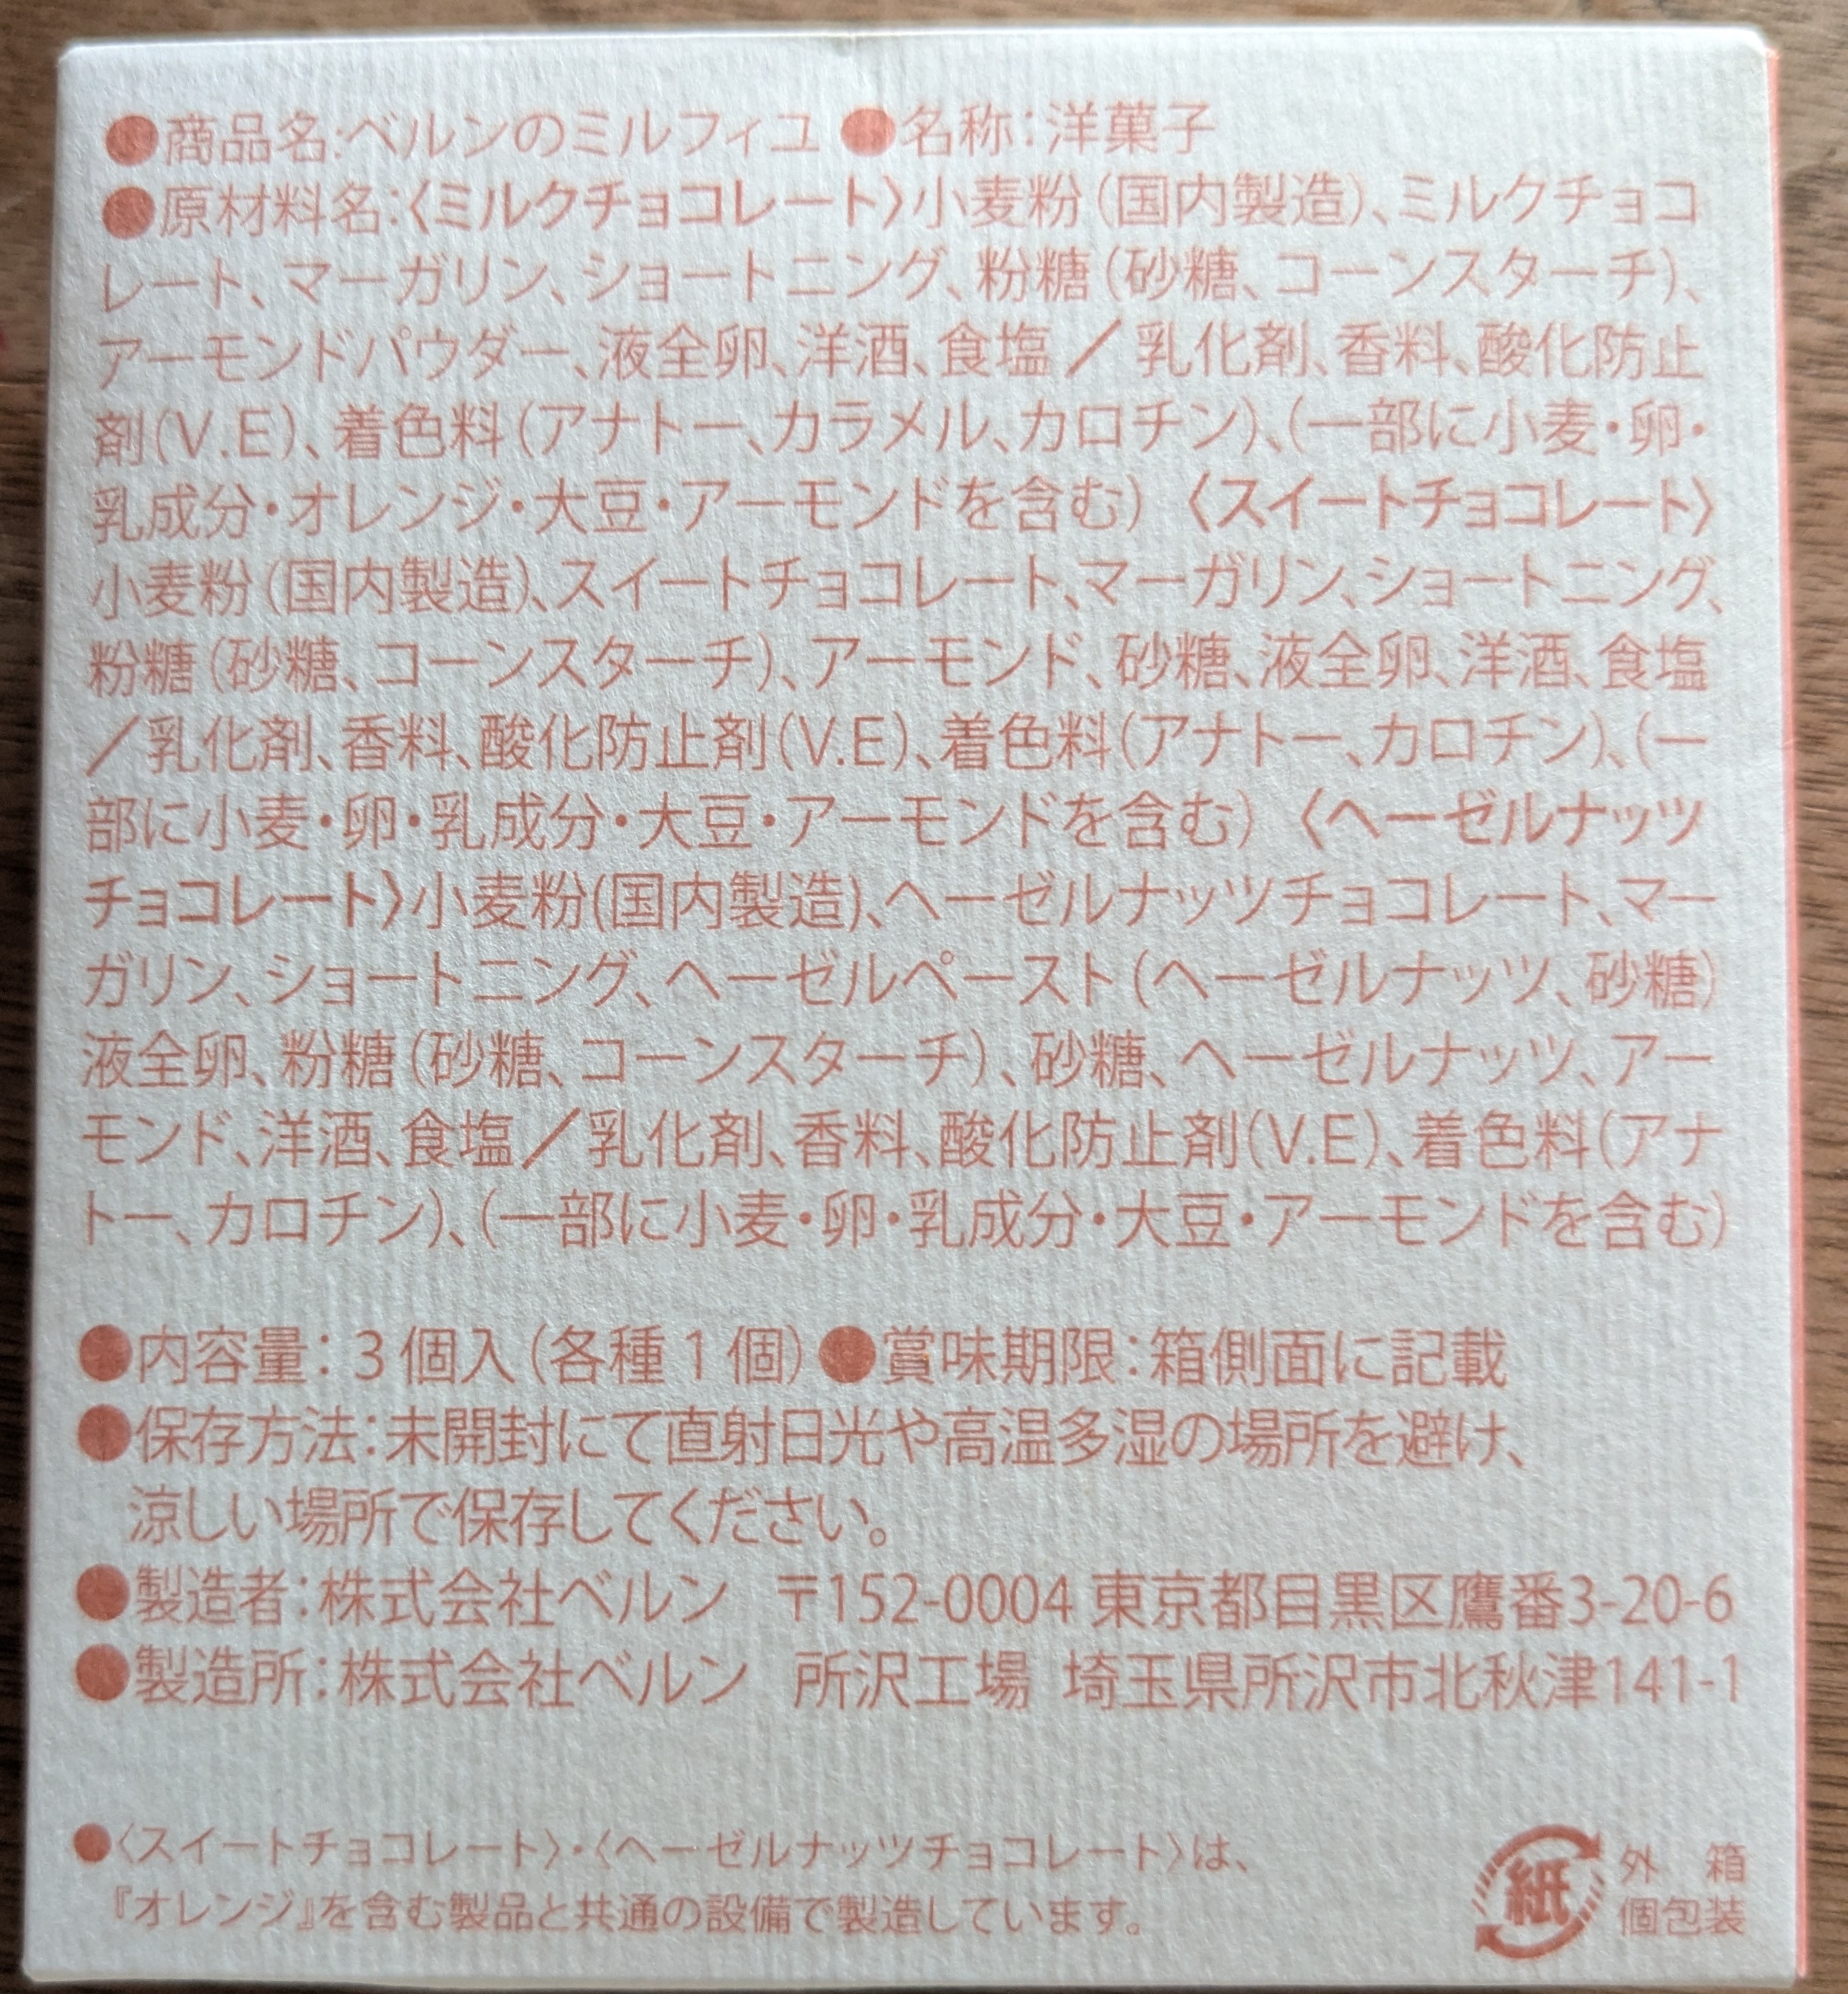 ●商品名:ベルンのミルフィユ ●名称:洋菓子
●原材料名:〈ミルクチョコレート〉小麦粉(国内製造)、ミルクチョコ
レート、マーガリン、ショートニング、粉糖(砂糖、コーンスターチ)、
アーモンドパウダー、液全卵、洋酒、食塩／乳化剤、香料、酸化防止
剤(V.E)、着色料(アナトー、カラメル、カロチン)、(一部に小麦・卵・
乳成分・オレンジ・大豆・アーモンドを含む)〈スイートチョコレート〉
小麦粉(国内製造)、スイートチョコレート、マーガリン、ショートニング、
粉糖(砂糖、コーンスターチ)、アーモンド、砂糖、液全卵、洋酒、食塩
／乳化剤、香料、酸化防止剤(V.E)、着色料(アナトー、カロチン)、(一
部に小麦・卵・乳成分・大豆・アーモンドを含む)〈ヘーゼルナッツ
チョコレート〉小麦粉(国内製造)、ヘーゼルナッツチョコレート、マー
ガリン、ショートニング、ヘーゼルペースト(ヘーゼルナッツ、砂糖)
液全卵、粉糖(砂糖、コーンスターチ)、砂糖、ヘーゼルナッツ、アー
モンド、洋酒、食塩／乳化剤、香料、酸化防止剤(V.E)、着色料(アナ
トー、カロチン)、(一部に小麦・卵・乳成分・大豆・アーモンドを含む)
●内容量:3個入(各種1個)●賞味期限:箱側面に記載
●保存方法:未開封にて直射日光や高温多湿の場所を避け、
涼しい場所で保存してください。
●製造者:株式会社ベルン 〒152-0004 東京都目黒区鷹番3-20-6
●製造所:株式会社ベルン 所沢工場 埼玉県所沢市北秋津141-1
●〈スイートチョコレート〉・〈ヘーゼルナッツチョコレート〉は、
『オレンジ』を含む製品と共通の設備で製造しています。
紙
外 箱
個包装